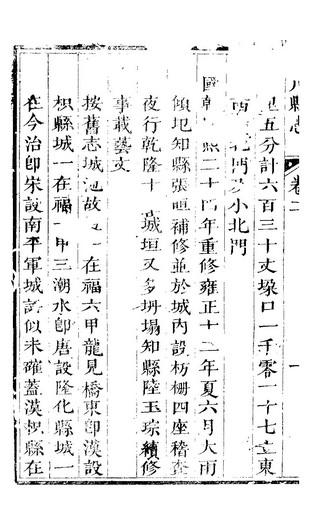 川縣志 卷二 一
里五分計六百三十丈垜口一千零一十七立東
西 北門及小北門
國朝 熙二十四年重修雍正十二年夏六月大雨
傾圯知縣張恒補修並於城內設栅欄四座稽查
夜行乾隆十 城垣又多坍塌知縣陸玉琮續修
事載藝文
按舊志城 故 一在福六甲龍見橋東卽漢設
枳縣城一在福 甲三潮水卽唐設隆化縣城一
在今治卽宋設南平軍城 似未確蓋漢枳縣在